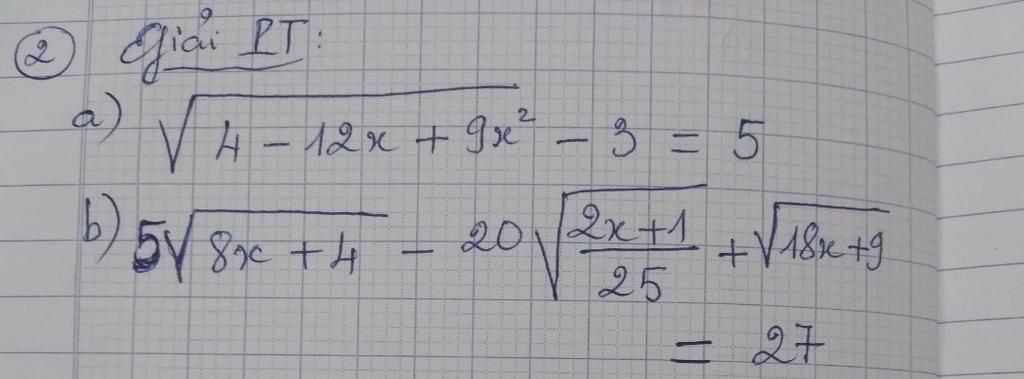 ② Giải PT:
a) √(4 - 12x + 9x²) - 3 = 5
b) 5√(8x + 4) - 20√((2x+1)/25) + √(18x+9)
= 27